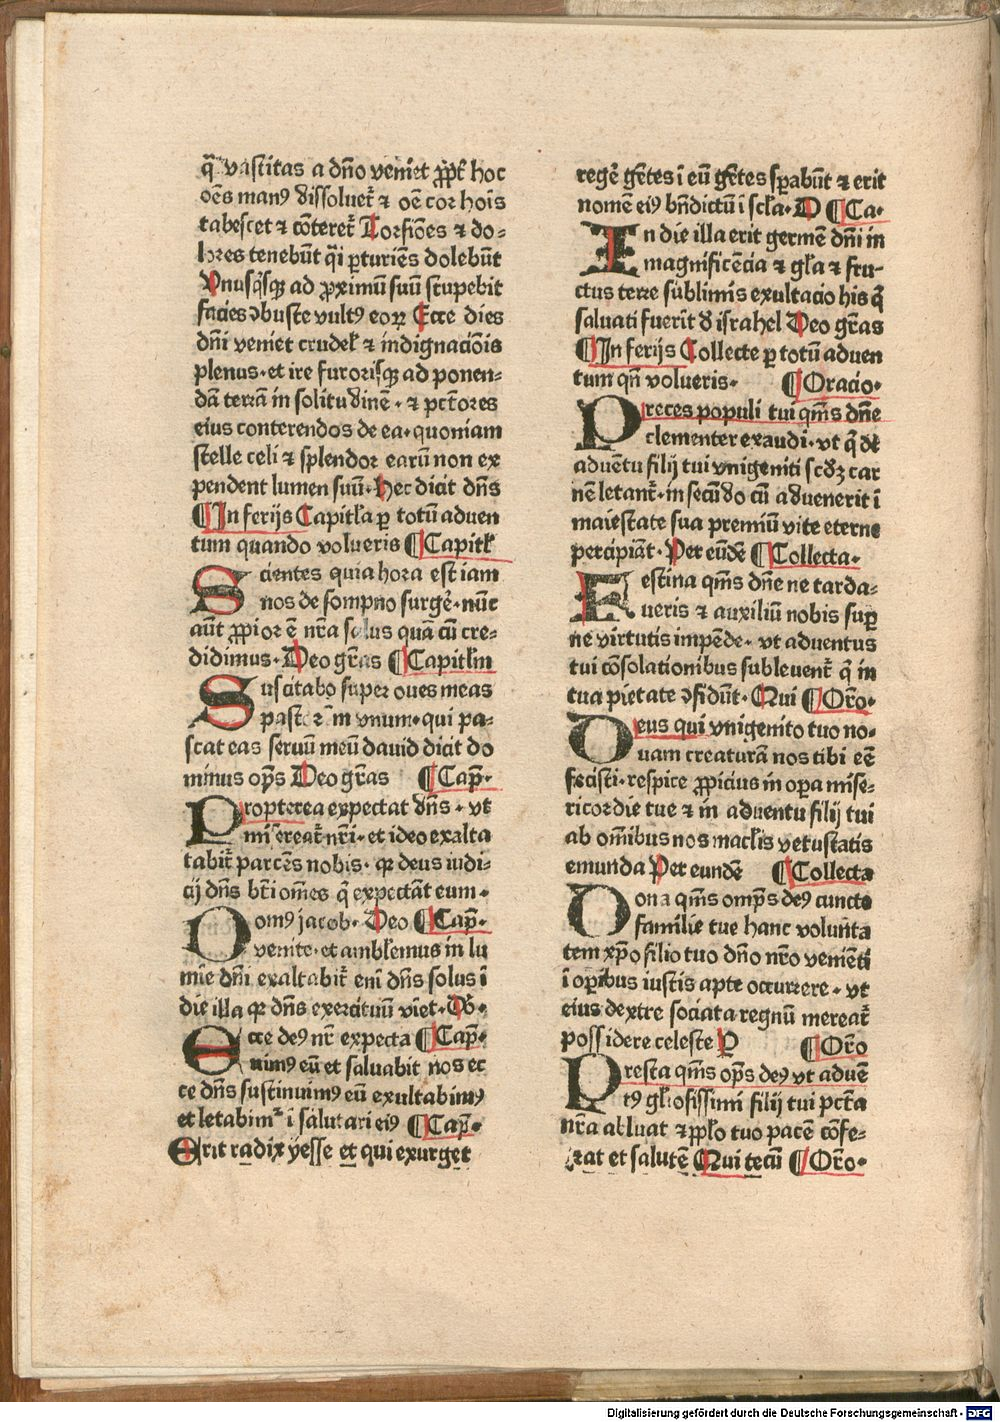 q̄ vastitas a dño veniet ꝓpt̄ hoc
oēs manꝰ dissoluet̄ ⁊ oē cor hoīs
tabescet ⁊ cōteret̄ Torsiões ⁊ do⸗
lores tenebūt q̄i ꝑturiēs dolebūt
Vnusq̄sqꝫ ad ꝓximū suū stupebit
facies ↄbuste vultꝰ eoꝝ Ecce dies
dñi veniet crudeł ⁊ indignaciōis
plenus· et ire furorisqꝫ ad ponen⸗
dā terrā in solitudinē· ⁊ pctōres
eius conterendos de ea· quoniam
stelle celi ⁊ splendor earū non ex
pendent lumen suū· Hec dicit dñs
¶In ferijs Capitła ꝑ totū aduen
tum quando volueris ¶Capitł
Scientes quia hora est iam
nos de sompno surgeꝛ̄· nūc
aūt ꝓpior ē nr̄a salus quā cū cre⸗
didimus· Deo gr̄as ¶Capitłm
Suscitabo super oues meas
pastorē m vnum· qui pa⸗
scat eas seruū meū dauid dicit do
minus op̄s Deo gr̄as ¶Cap̄·
Propterea expectat dñs· vt
misereat̄ nr̄i· et ideo exalta
tabit̄ parcēs nobis· qꝛ deus iudi⸗
cij dñs bt̄i om̄es q̄ expectāt eum·
Domꝰ jacob· Deo ¶Cap̄·
venite· et ambłemus in lu
mīe dñi exaltabit̄ enī dñs solus ī
die illa qꝛ dñs exercituū vīet· D̄·
Ecce deꝰ nr̄ expecta ¶Cap̄·
uimꝰ eū et saluabit nos ec
ce dñs sustinuimꝰ eū exultabimꝰ
et letabimꝛ ī salutari eiꝰ ¶Cap̄·
Erit radix yesse et qui exurget
regeꝛ̄ gētes ī eū gētes sꝑabūt ⁊ erit
nomē eiꝰ bñdictū ī scła· D ¶Ca·
In die illa erit germē dñi in
magnificēcia ⁊ gła ⁊ fru⸗
ctus terre sublimīs exultacio his q̄
saluati fuerīt d israhel Deo gr̄as
¶In ferijs Collecte ꝑ totū aduen
tum qñ volueris· ¶Oracio·
Preces populi tui qm̄s dñe
clementer exaudi· vt q̄ de
aduētu filij tui vnigeniti scd̄ꝫ car
nē letant̄· in secūdo cū aduenerit ī
maiestate sua premiū vite eterne
percipiāt· Per eūdē ¶Collecta·
Festina qm̄s dñe ne tarda⸗
ueris ⁊ auxiliū nobis suꝑ
ne virtutis impēde· vt aduentus
tui cōsolationibus subleuent̄ q̄ in
tua pietate ↄfidūt· Qui ¶Or̄o·
Deus qui vnigenito tuo no⸗
uam creaturā nos tibi eē
fecisti· respice ꝓpicius in oꝑa mise⸗
ricordie tue ⁊ in aduentu filij tui
ab om̄ibus nos macłis vetustatis
emunda Per eundē ¶Collecta
Dona qm̄s omp̄s deꝰ cuncte
familie tue hanc volūta
tem xp̄o filio tuo dño nr̄o veniēti
ī oꝑibus iustis apte occurrere· vt
eius dextre sociata regnū mereat̄
possidere celeste P ¶Or̄o
Presta qm̄s op̄s deꝰ vt aduē
tꝰ głiosissimi filij tui pctā
nr̄a abluat ⁊ ppło tuo pacē cōfe⸗
rat et salutē Qui tecū ¶Or̄o·
Digitalisierung gefördert durch die Deutsche Forschungsgemeinschaft - DFG